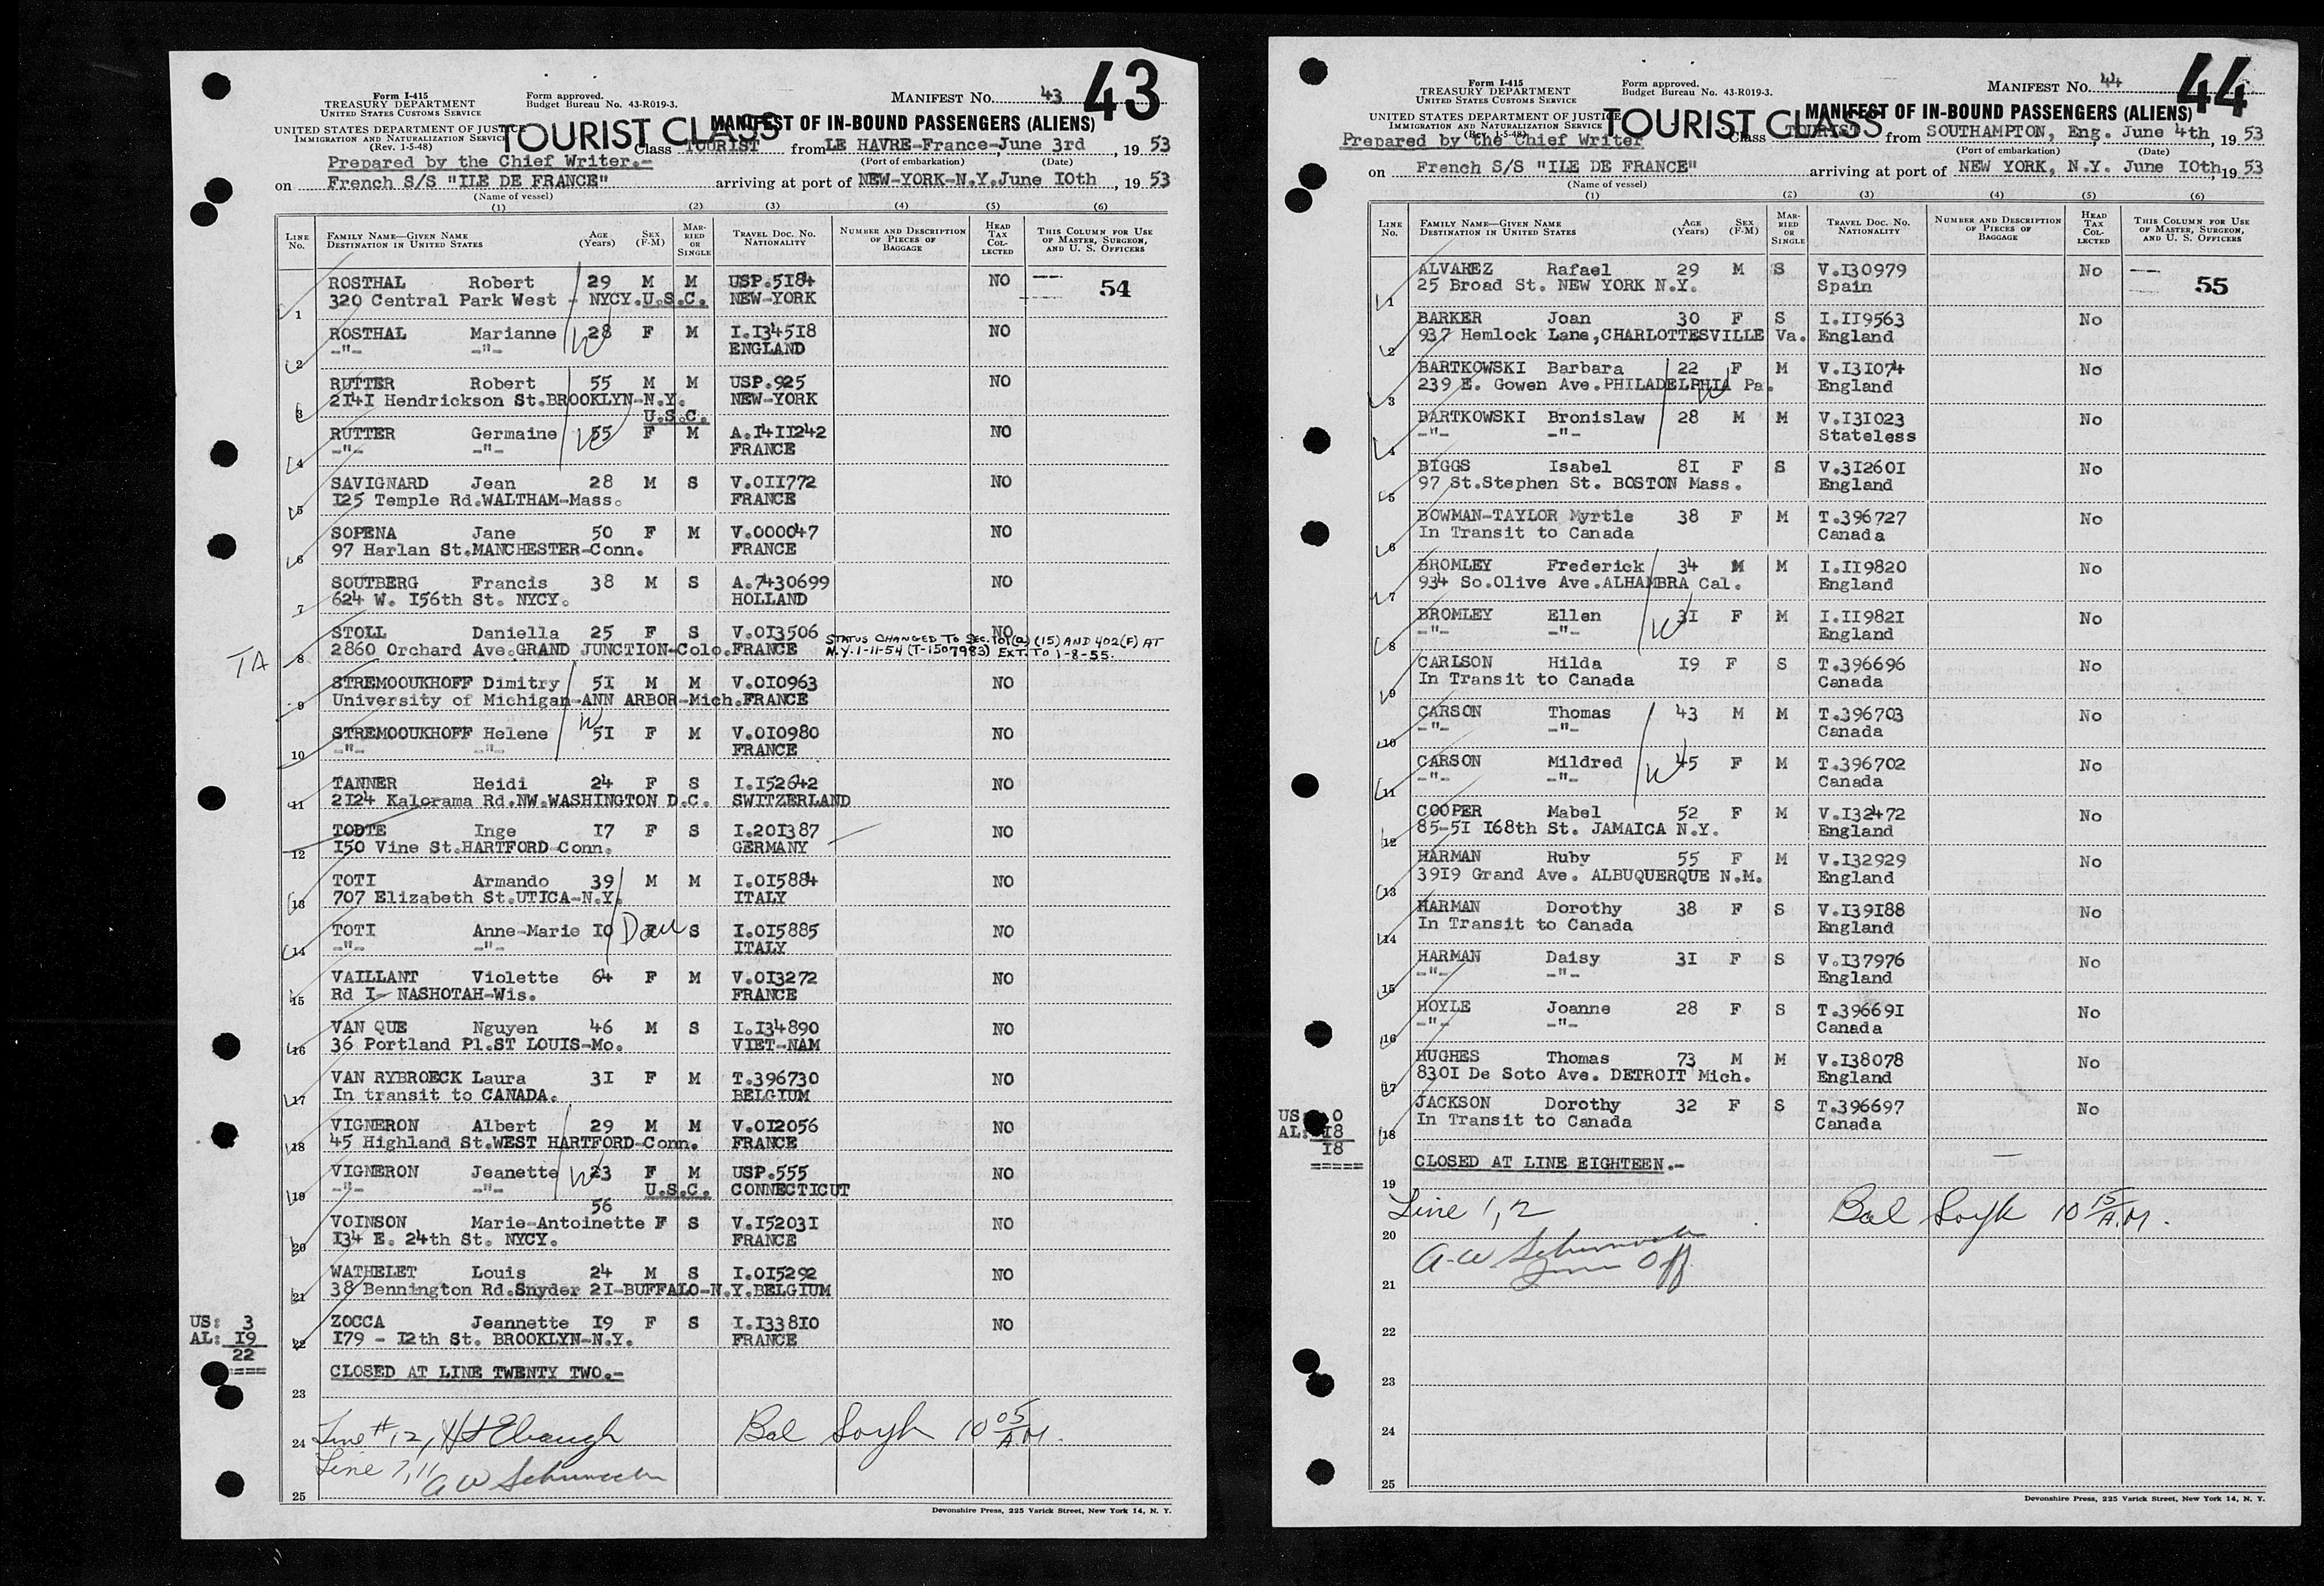 43
Form I-415
TREASURY DEPARTMENT
UNITED STATES CUSTOMS SERVICE
Form approved.
Budget Bureau No. 43-R019-3.
MANIFEST No. 43
UNITED STATES DEPARTMENT OF JUSTICE
IMMIGRATION AND NATURALIZATION SERVICE
(Rev. 1-5-48)
TOURIST CLASS
MANIFEST OF IN-BOUND PASSENGERS (ALIENS)
Prepared by the Chief Writer.-
Class TOURIST from LE HAVRE-France-June 3rd, 1953
(Port of embarkation) (Date)
on French S/S "ILE DE FRANCE" arriving at port of NEW-YORK-N.Y. June 10th, 1953
(Name of vessel)
(1) (2) (3) (4) (5) (6)
LINE No. FAMILY NAME—GIVEN NAME DESTINATION IN UNITED STATES AGE (Years) SEX (F-M) MARRIED OR SINGLE TRAVEL DOC. NO. NATIONALITY NUMBER AND DESCRIPTION OF PIECES OF BAGGAGE HEAD TAX COLLECTED THIS COLUMN FOR USE OF MASTER, SURGEON, AND U. S. OFFICERS
ROSTHAL Robert 29 M M USP.5184 NO 54
1 320 Central Park West - NYCY.U.S.C. NEW-YORK
ROSTHAL Marianne 28 F M I.134518 NO
2 -"- -"- ENGLAND
RUTTER Robert 55 M M USP.925 NO
3 2141 Hendrickson St.BROOKLYN-N.Y. NEW-YORK
U.S.C.
RUTTER Germaine 55 F M A.1411242 NO
4 -"- -"- FRANCE
SAVIGNARD Jean 28 M S V.011772 NO
5 125 Temple Rd.WALTHAM-Mass. FRANCE
SOPENA Jane 50 F M V.000047 NO
6 97 Harlan St.MANCHESTER-Conn. FRANCE
SOUTBERG Francis 38 M S A.7430699 NO
7 624 W. 156th St. NYCY. HOLLAND
STOLL Daniella 25 F S V.013506 NO
TA 8 2860 Orchard Ave.GRAND JUNCTION-Colo.FRANCE
STATUS CHANGED TO SEC. 101(a) (15) AND 402(F) AT
N.Y. 1-11-54 (T-1507983) EXT. TO 1-8-55.
STREMOOUKHOFF Dimitry 51 M M V.010963 NO
9 University of Michigan-ANN ARBOR-Mich.FRANCE
STREMOOUKHOFF Helene 51 F M V.010980 NO
10 -"- -"- FRANCE
TANNER Heidi 24 F S I.152642 NO
11 2124 Kalorama Rd.NW.WASHINGTON D.C. SWITZERLAND
TODTE Inge 17 F S I.201387 NO
12 150 Vine St.HARTFORD-Conn. GERMANY
TOTI Armando 39 M M I.015884 NO
13 707 Elizabeth St.UTICA-N.Y. ITALY
TOTI Anne-Marie 10 F S I.015885 NO
14 -"- -"- ITALY
VAILLANT Violette 64 F M V.013272 NO
15 Rd I- NASHOTAH-Wis. FRANCE
VAN QUE Nguyen 46 M S I.134890 NO
16 36 Portland Pl.ST LOUIS-Mo. VIET-NAM
VAN RYBROECK Laura 31 F M T.396730 NO
17 In transit to CANADA. BELGIUM
VIGNERON Albert 29 M M V.012056 NO
18 45 Highland St.WEST HARTFORD-Conn. FRANCE
VIGNERON Jeanette 23 F M USP.555 NO
19 -"- -"- U.S.C. CONNECTICUT
56
VOINSON Marie-Antoinette F S V.152031 NO
20 134 E. 24th St. NYCY. FRANCE
WATHELET Louis 24 M S I.015292 NO
21 38 Bennington Rd.Snyder 21-BUFFALO-N.Y.BELGIUM
US: 3 ZOCCA Jeannette 19 F S I.133810 NO
AL: 19 22 179 - 12th St. BROOKLYN-N.Y. FRANCE
22
=====
CLOSED AT LINE TWENTY TWO.-
23
24 Line # 12, Bal 10 05 A.M.
Line 7, 11 A W
25
Devonshire Press, 225 Varick Street, New York 14, N. Y.
44
Form I-415
TREASURY DEPARTMENT
UNITED STATES CUSTOMS SERVICE
Form approved.
Budget Bureau No. 43-R019-3.
MANIFEST No. 44
UNITED STATES DEPARTMENT OF JUSTICE
IMMIGRATION AND NATURALIZATION SERVICE
(Rev. 1-5-48)
TOURIST CLASS
MANIFEST OF IN-BOUND PASSENGERS (ALIENS)
Prepared by the Chief Writer
Class TOURIST from SOUTHAMPTON, Eng. June 4th, 1953
(Port of embarkation) (Date)
on French S/S "ILE DE FRANCE" arriving at port of NEW YORK, N.Y. June 10th, 1953
(Name of vessel)
(1) (2) (3) (4) (5) (6)
LINE No. FAMILY NAME—GIVEN NAME DESTINATION IN UNITED STATES AGE (Years) SEX (F-M) MARRIED OR SINGLE TRAVEL DOC. NO. NATIONALITY NUMBER AND DESCRIPTION OF PIECES OF BAGGAGE HEAD TAX COLLECTED THIS COLUMN FOR USE OF MASTER, SURGEON, AND U. S. OFFICERS
ALVAREZ Rafael 29 M S V.130979 No 55
1 25 Broad St. NEW YORK N.Y. Spain
BARKER Joan 30 F S I.119563 No
2 937 Hemlock Lane,CHARLOTTESVILLE Va. England
BARTKOWSKI Barbara 22 F M V.131074 No
3 239 E. Gowen Ave.PHILADELPHIA Pa. England
BARTKOWSKI Bronislaw 28 M M V.131023 No
4 -"- -"- Stateless
BIGGS Isabel 81 F S V.312601 No
5 97 St.Stephen St. BOSTON Mass. England
BOWMAN-TAYLOR Myrtle 38 F M T.396727 No
6 In Transit to Canada Canada
BROMLEY Frederick 34 M M I.119820 No
7 934 So.Olive Ave.ALHAMBRA Cal. England
BROMLEY Ellen 31 F M I.119821 No
8 -"- -"- England
CARLSON Hilda 19 F S T.396696 No
9 In Transit to Canada Canada
CARSON Thomas 43 M M T.396703 No
10 -"- -"- Canada
CARSON Mildred 45 F M T.396702 No
11 -"- -"- Canada
COOPER Mabel 52 F M V.132472 No
12 85-51 168th St. JAMAICA N.Y. England
HARMAN Ruby 55 F M V.132929 No
13 3919 Grand Ave. ALBUQUERQUE N.M. England
HARMAN Dorothy 38 F S V.139188 No
14 In Transit to Canada England
HARMAN Daisy 31 F S V.137976 No
15 -"- -"- England
HOYLE Joanne 28 F S T.396691 No
16 -"- -"- Canada
HUGHES Thomas 73 M M V.138078 No
17 8301 De Soto Ave. DETROIT Mich. England
US 0 JACKSON Dorothy 32 F S T.396697 No
AL: 18 18 In Transit to Canada Canada
18
=====
CLOSED AT LINE EIGHTEEN.-
19
Line 1, 2 Bal 10 15 A.M.
20
A-W
21
22
23
24
25
Devonshire Press, 225 Varick Street, New York 14, N. Y.